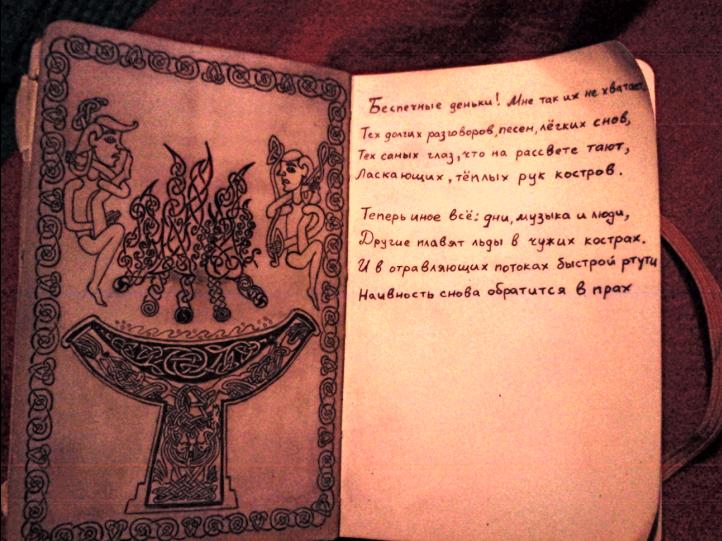 Беспечные деньки! Мне так их не хватает,
Тех долгих разговоров, песен, лёгких снов,
Тех самых глаз, что на рассвете тают,
Ласкающих, тёплых рук костров.
Теперь иное всё: дни, музыка и люди,
Другие плавят льды в чужих кострах.
И в отравляющих потоках быстрой ртути
Наивность снова обратится в прах